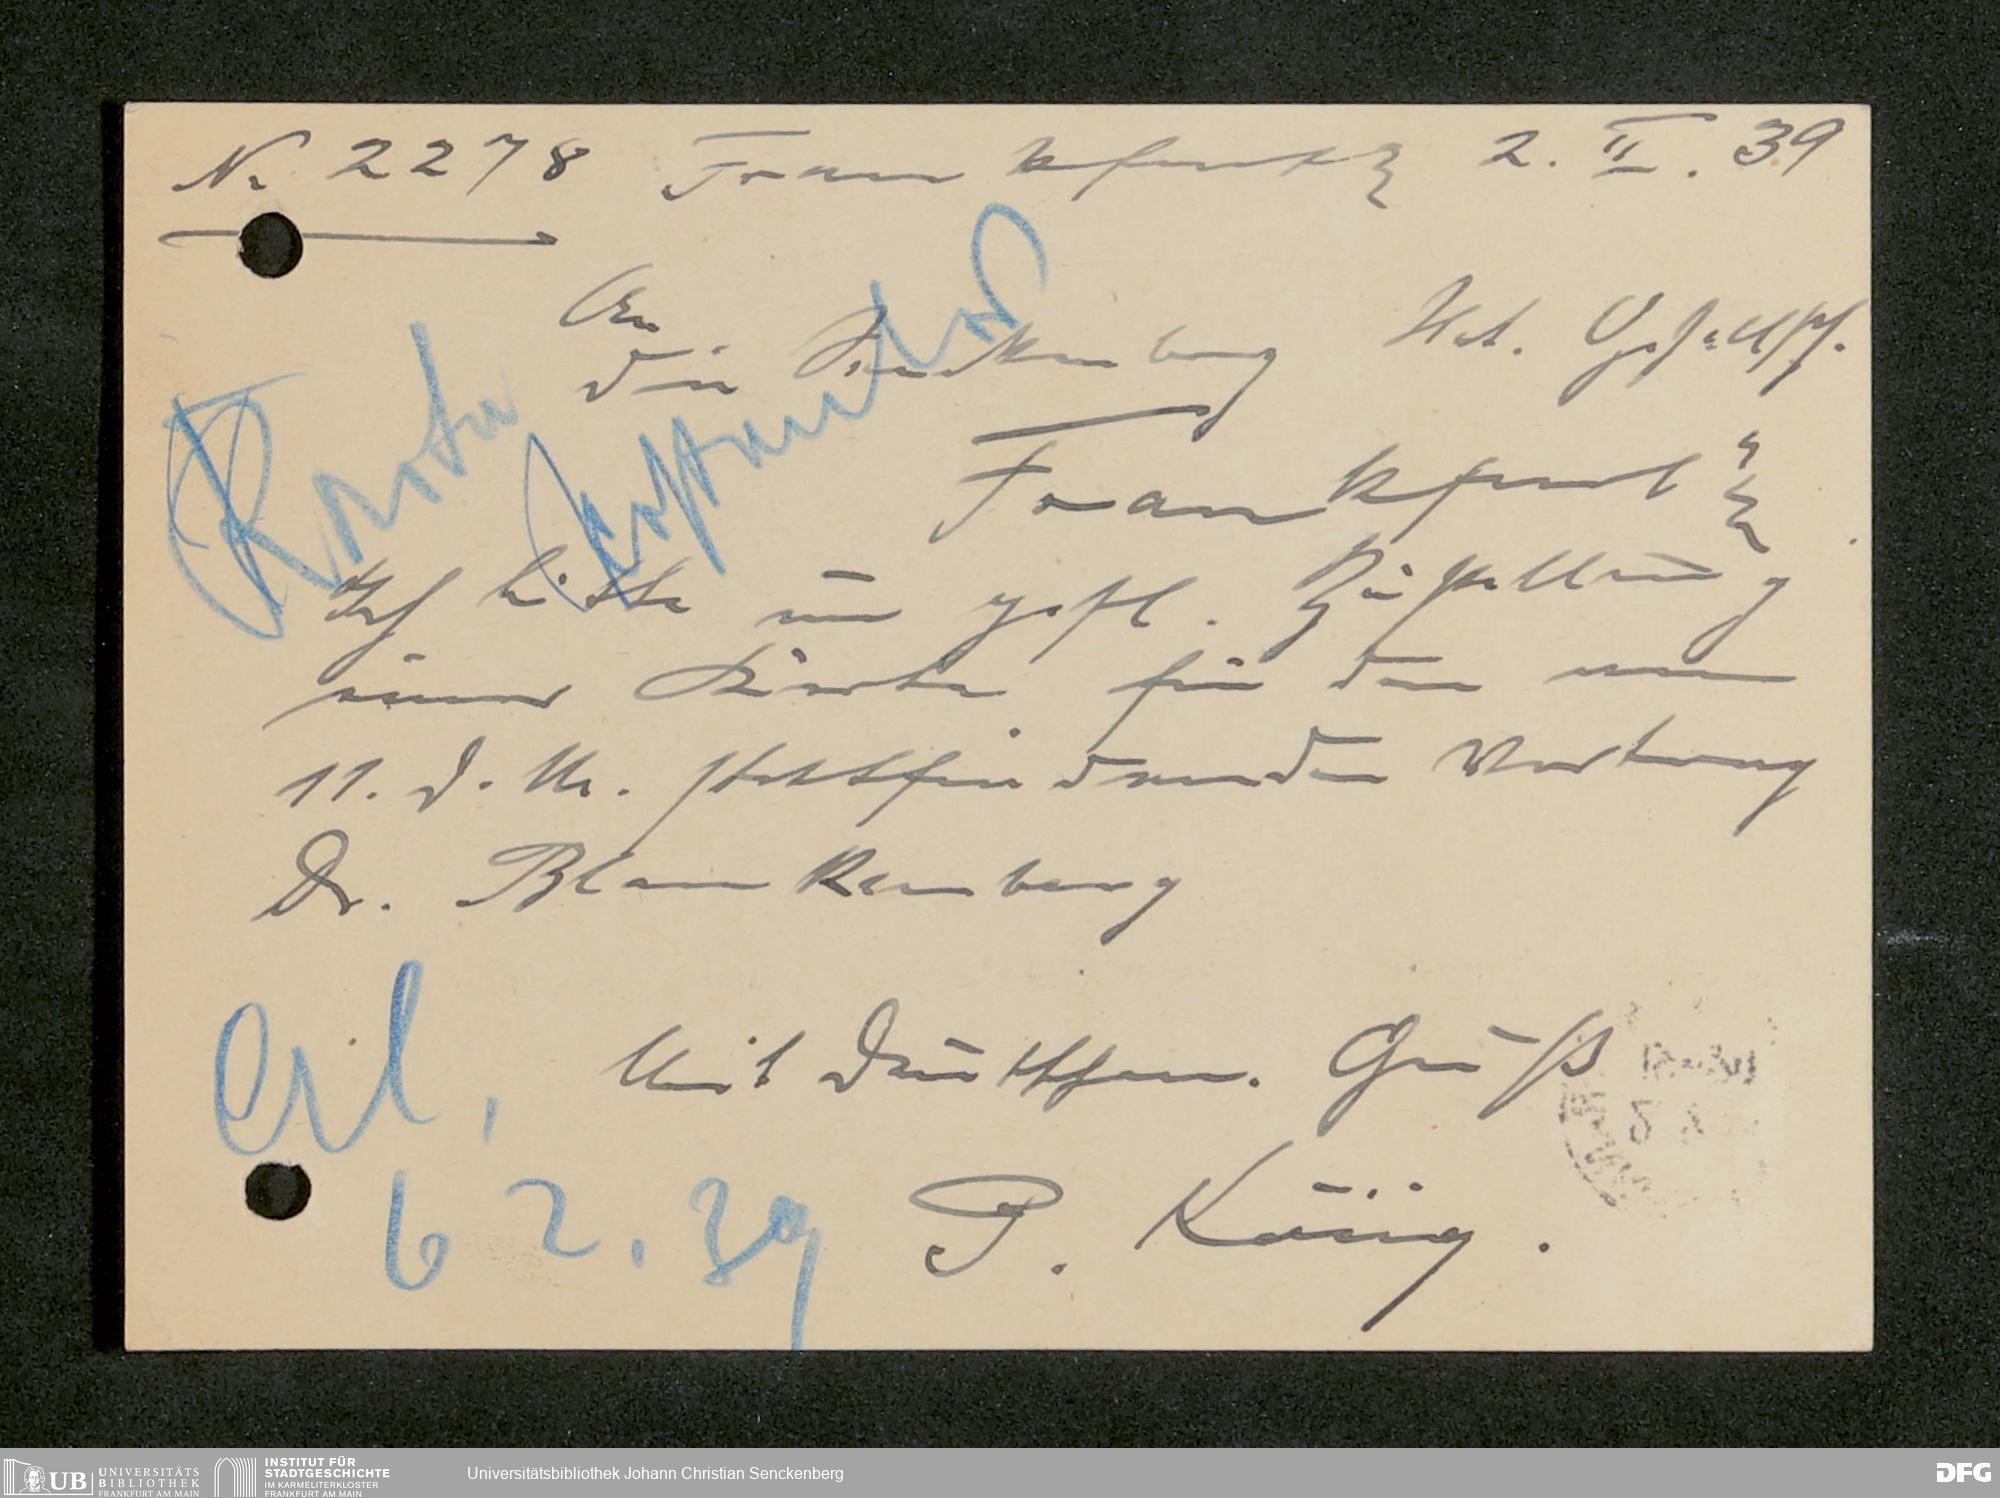 Nr 2278 Frankfurt 2. II. 39
An
die Senckenberg Nat. Gesellsch.
Frankfurt
Karte
Ich bitte um gefl. Zustellung
einer Karte für den am
11. d. M. stattfindenden Vortrag
Dr. Blankenberg
Mit deutschem. Gruß
P. König.
erl,
6 2. 39
UB UNIVERSITÄTS
BIBLIOTHEK
FRANKFURT AM MAIN
INSTITUT FÜR
STADTGESCHICHTE
IM KARMELITERKLOSTER
FRANKFURT AM MAIN
Universitätsbibliothek Johann Christian Senckenberg
DFG